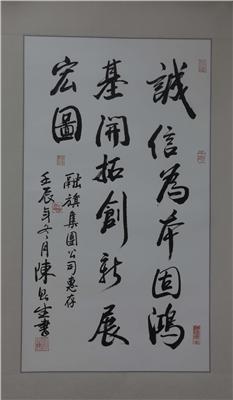 誠信為本固鴻
基開拓創新展
宏圖
融旗集團公司惠存
壬辰年冬月陳生書